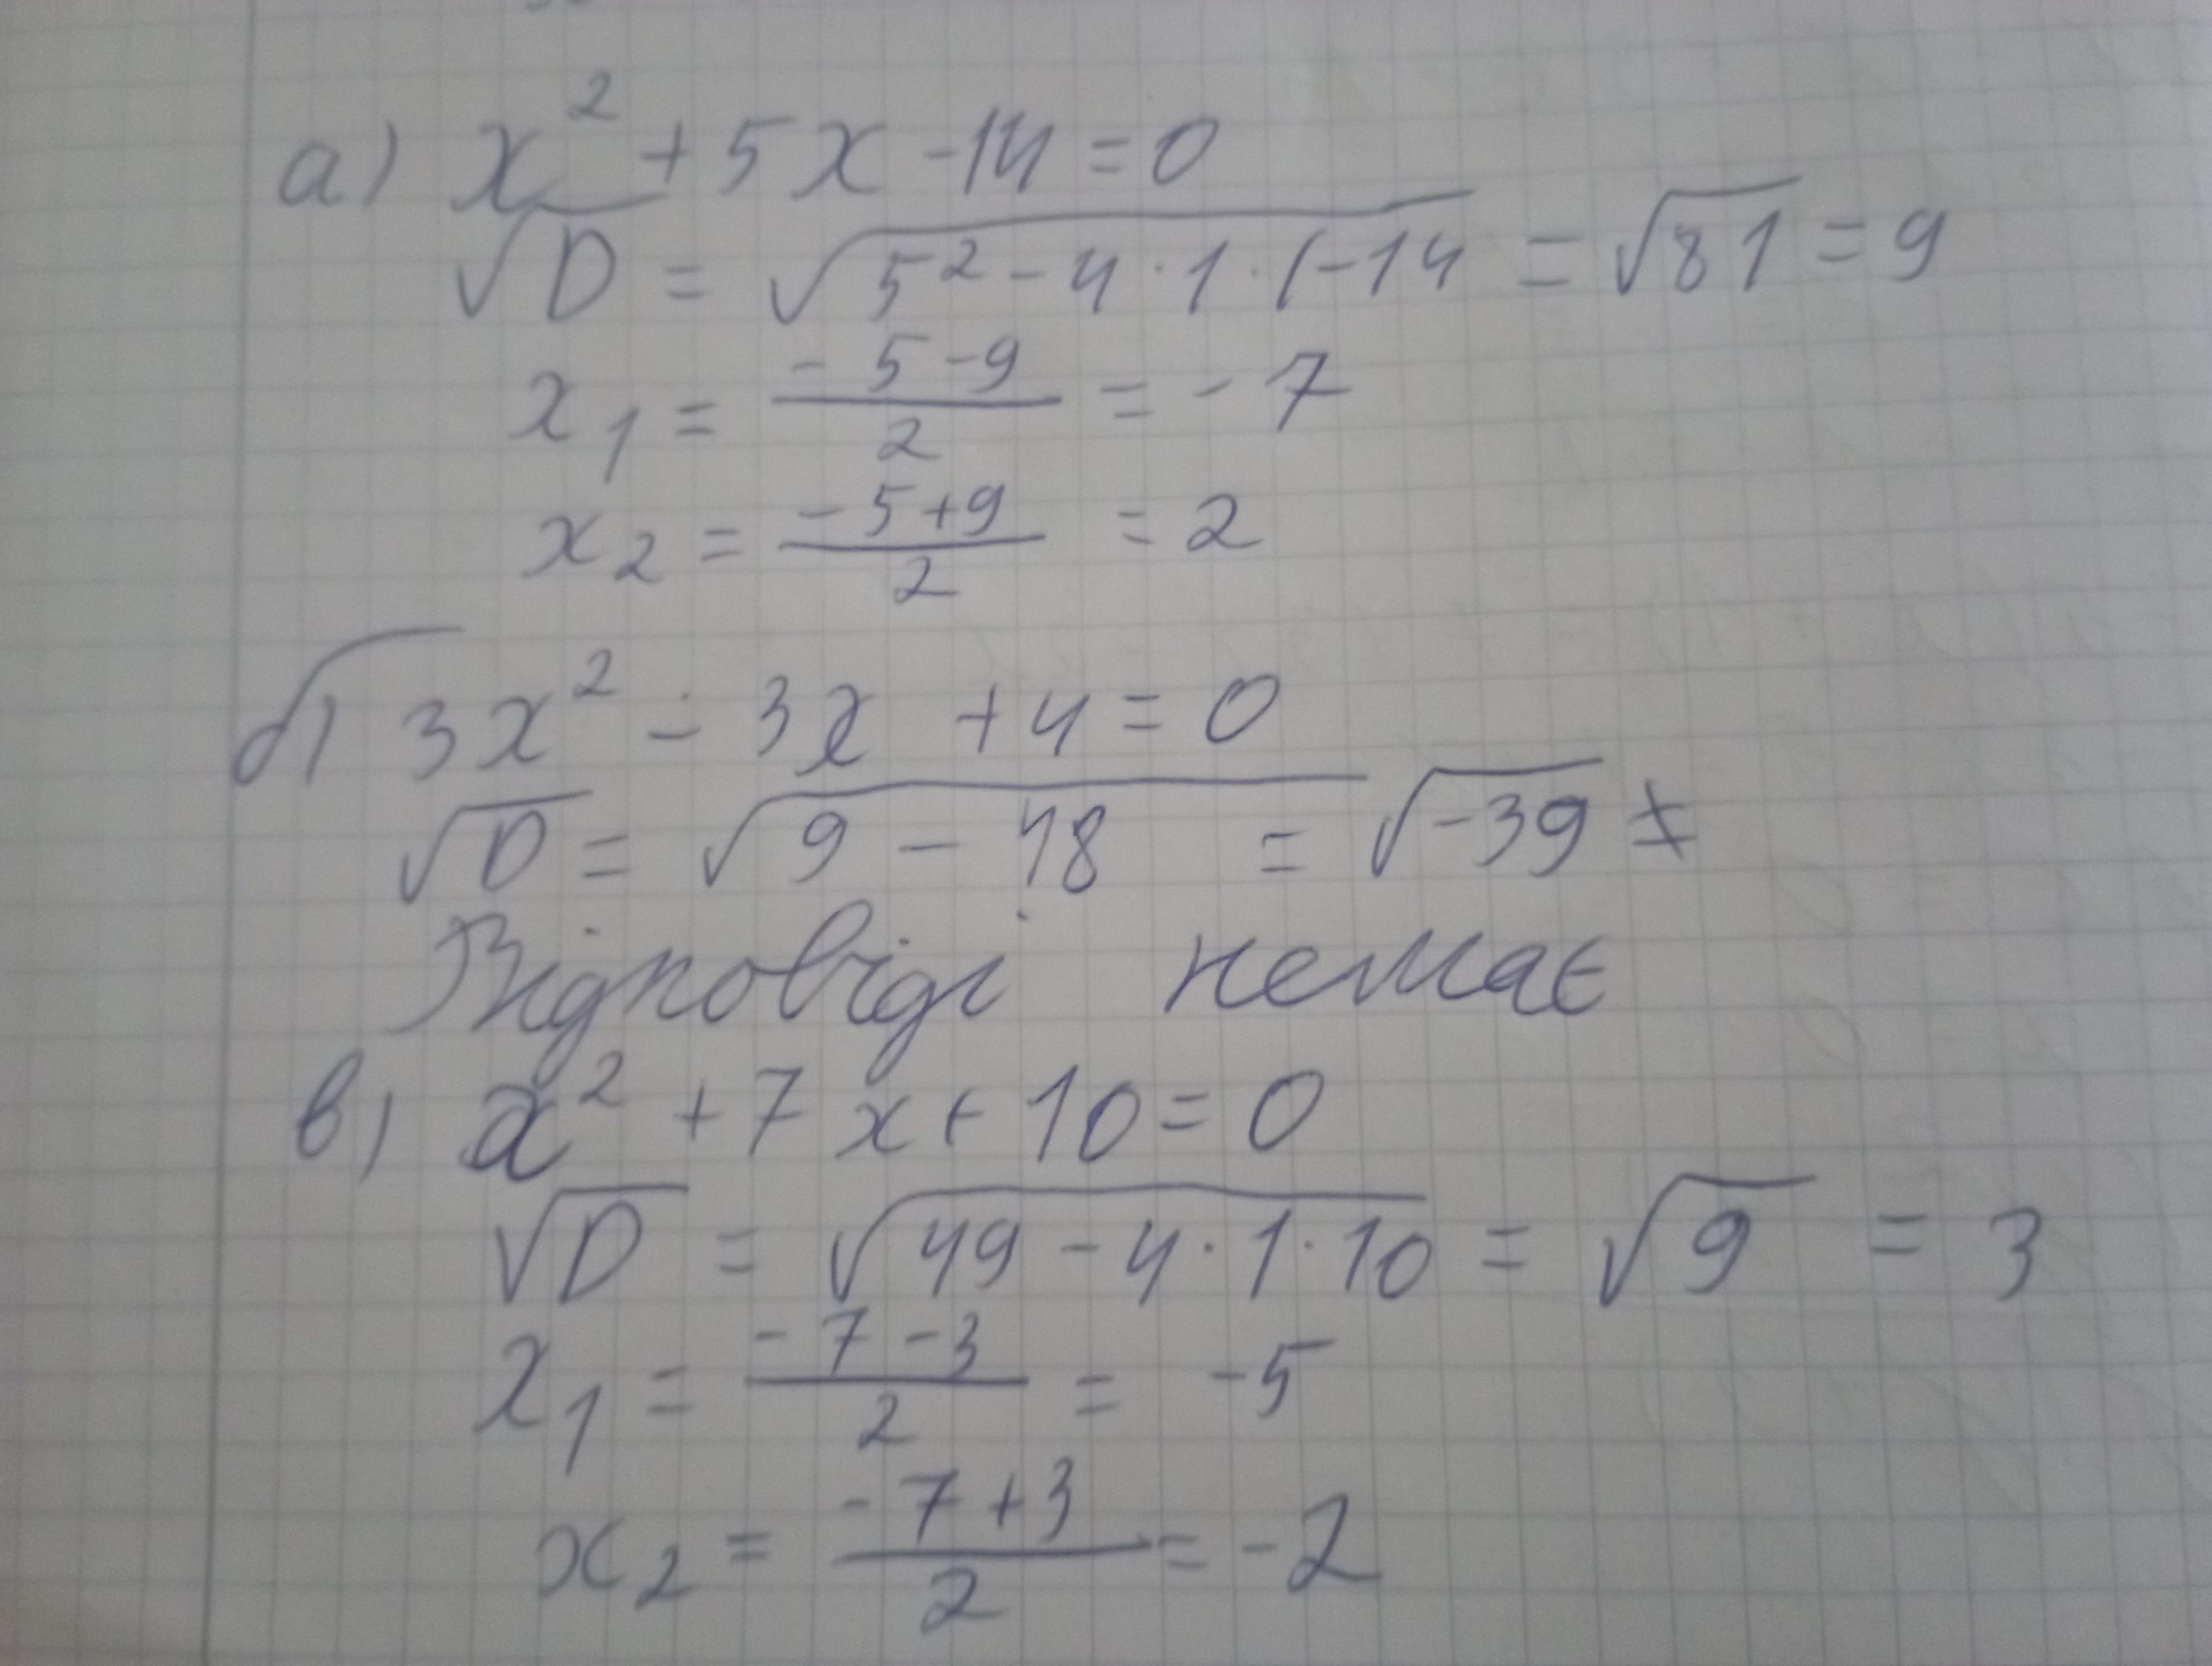 а) x² + 5x - 14 = 0
√D = √5² - 4 · 1 · (-14 = √81 = 9
x₁ = (-5 - 9)/2 = -7
x₂ = (-5 + 9)/2 = 2
б) 3x² - 3x + 4 = 0
√D = √9 - 48 = √-39 ≠
Відповіді немає
в) x² + 7x + 10 = 0
√D = √49 - 4 · 1 · 10 = √9 = 3
x₁ = (-7 - 3)/2 = -5
x₂ = (-7 + 3)/2 = -2